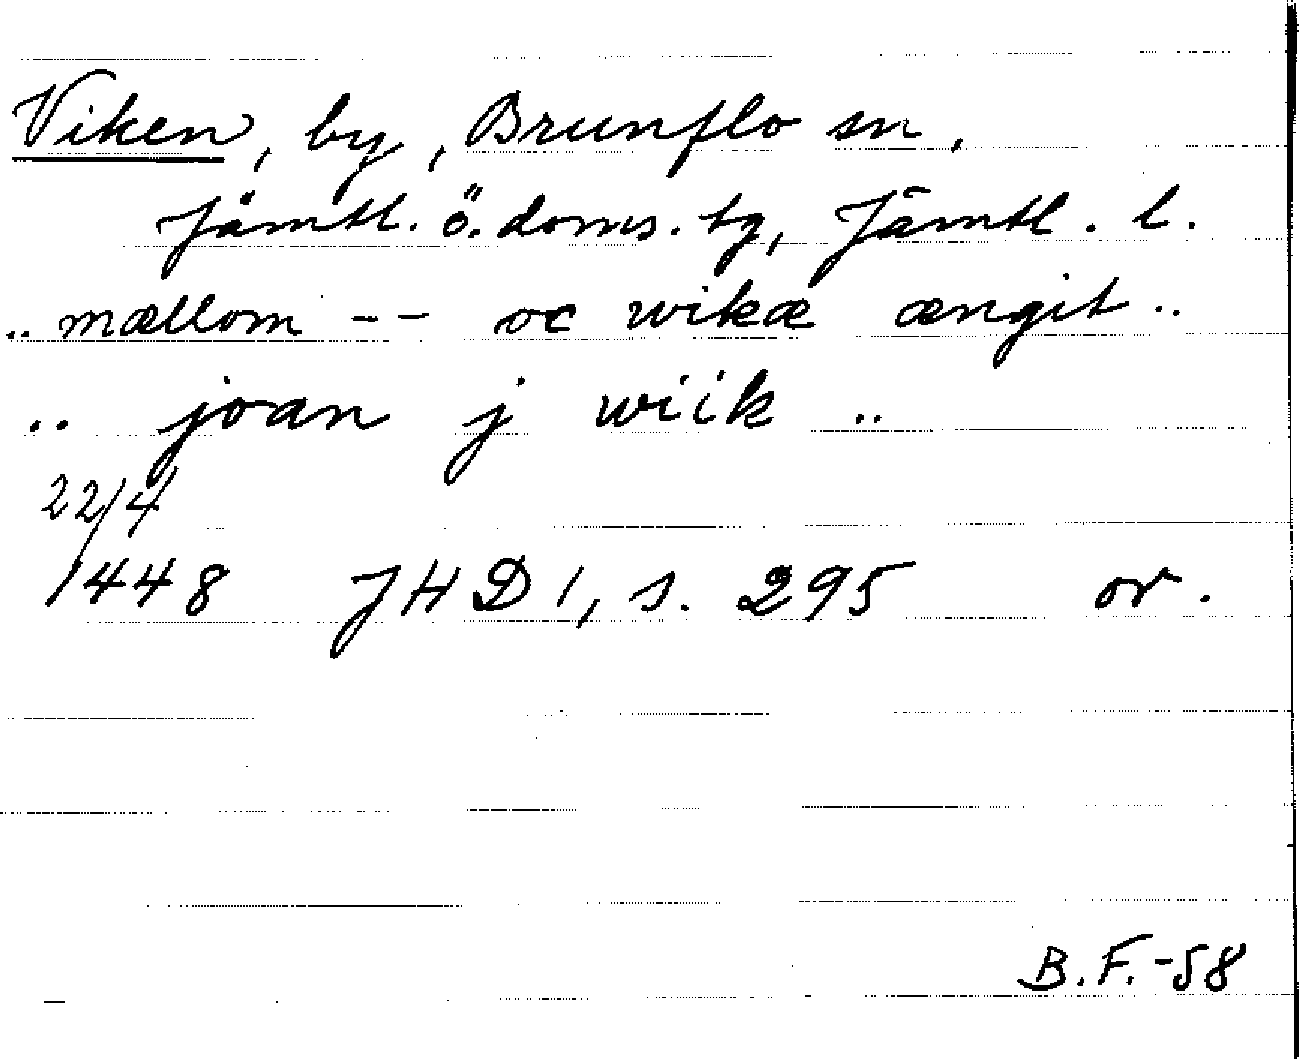 Viken, by, Brunflo sn,
Jämtl. ö. doms. tg, Jämtl. l.
.. mællom -- oc wikæ ængit ..
.. joan j wiik ..
22/4
1448 JHD 1, s. 295 or.
B.F.-58